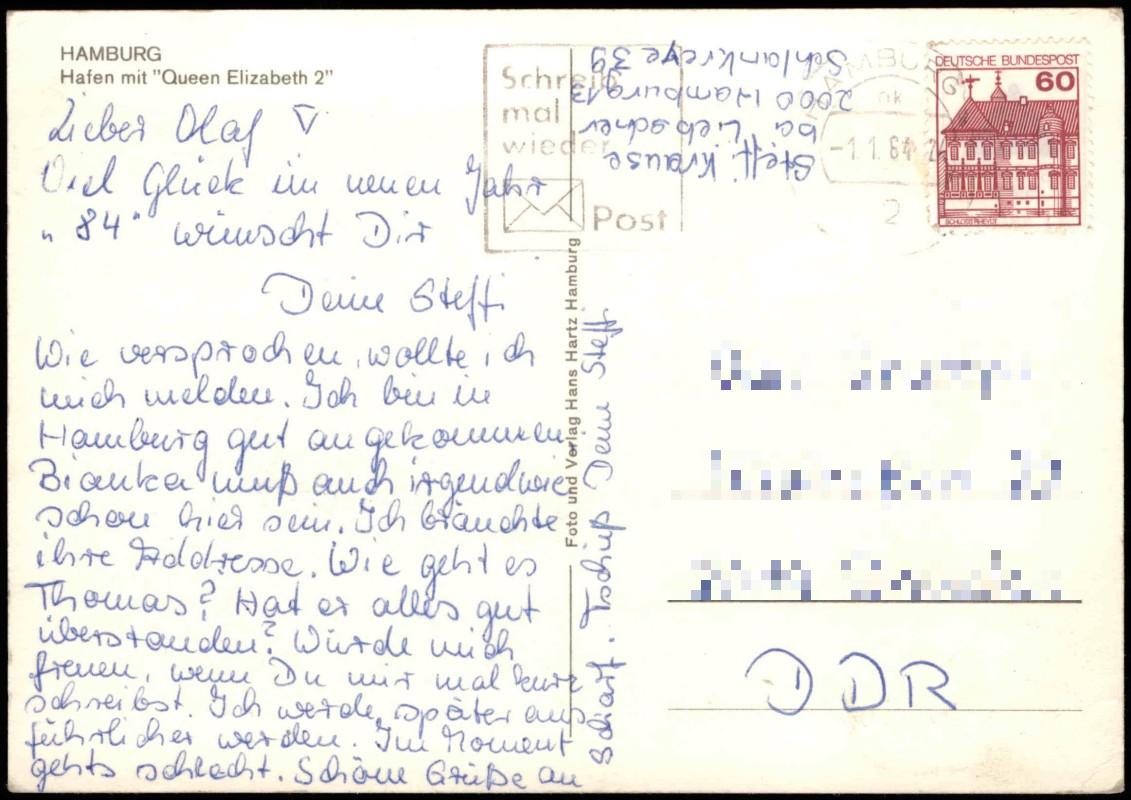 HAMBURG
Hafen mit "Queen Elizabeth 2"
Lieber Olaf
Viel Glück im neuen Jahr
„84“ wünscht Dir
Deine Steffi
Wie versprochen, wollte ich
mich melden. Ich bin in
Hamburg gut angekommen
Bianka muß auch irgendwie
schon hier sein. Ich bräuchte
ihre Addresse. Wie geht es
Thomas? Hat er alles gut
überstanden? Würde mich
freuen, wenn Du mir mal kurz
schreibst. Ich werde später aus
führlicher werden. Im Moment
gehts schlecht. Schöne Grüße an
Tschüß Deine Steffi
Foto und Verlag Hans Hartz Hamburg
Steffi Krause
bei Liebscher
2000 Hamburg 13
Schlankreye 39
Schreib
mal
wieder
Post
HAMBURG
-1.1.84
2
DEUTSCHE BUNDESPOST
60
SCHLOSS RHEYDT
DDR